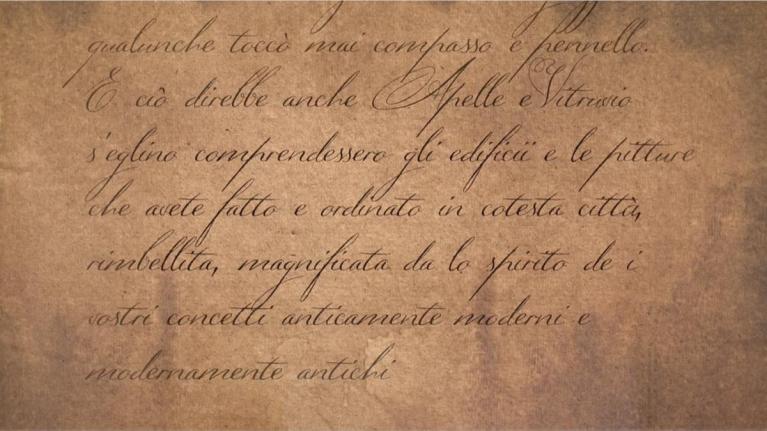 qualunche toccò mai compasso e pennello.
E ciò direbbe anche Apelle e Vitruvio
s'eglino comprendessero gli edificii e le pitture
che avete fatto e ordinato in cotesta città,
rimbellita, magnificata da lo spirito de i
vostri concetti anticamente moderni e
modernamente antichi